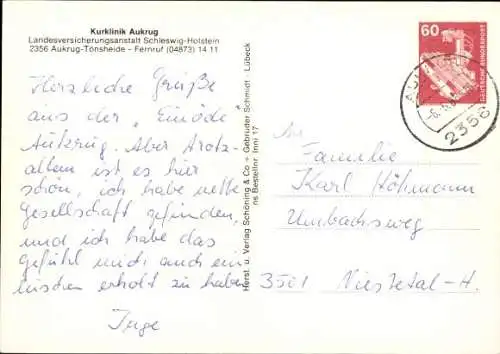 Kurklinik Aukrug
Landesversicherungsanstalt Schleswig-Holstein
2356 Aukrug-Tönsheide - Fernruf (04873) 14 11
Herzliche Grüße
aus der „Einöde"
Aukrug. Aber trotz-
allem ist es hier
schön, ich habe nette
Gesellschaft gefunden,
und ich habe das
Gefühl mich auch ein
bischen erholt zu haben
Inge
Herst. u. Verlag Schöning & Co + Gebrüder Schmidt · Lübeck
ns Bestellnr. Inni 17
60
DEUTSCHE BUNDESPOST
2356
An
Familie
Karl Höhmann
Umbachsweg
3501 Niestetal-H.